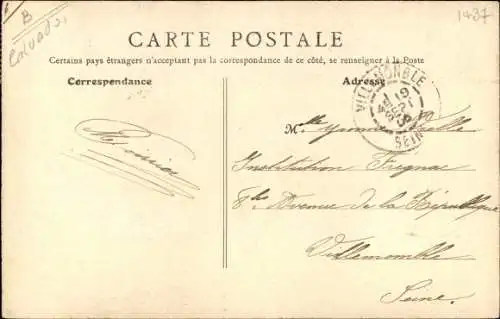 B
Calvados
1437
CARTE POSTALE
Certains pays étrangers n'acceptant pas la correspondance de ce côté, se renseigner à la Poste
Correspondance
Adresse
VILLEMOMBLE
SEINE
Mlle Yvonne
Institution Fregnac
8 bis Avenue de la République
Villemomble
Seine.